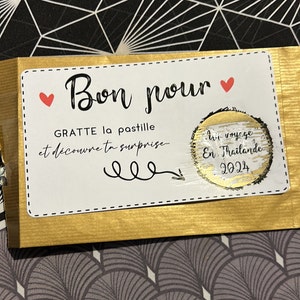 Bon pour
GRATTE la pastille
et découvre ta surprise...
Un voyage
En Thaïlande
2024